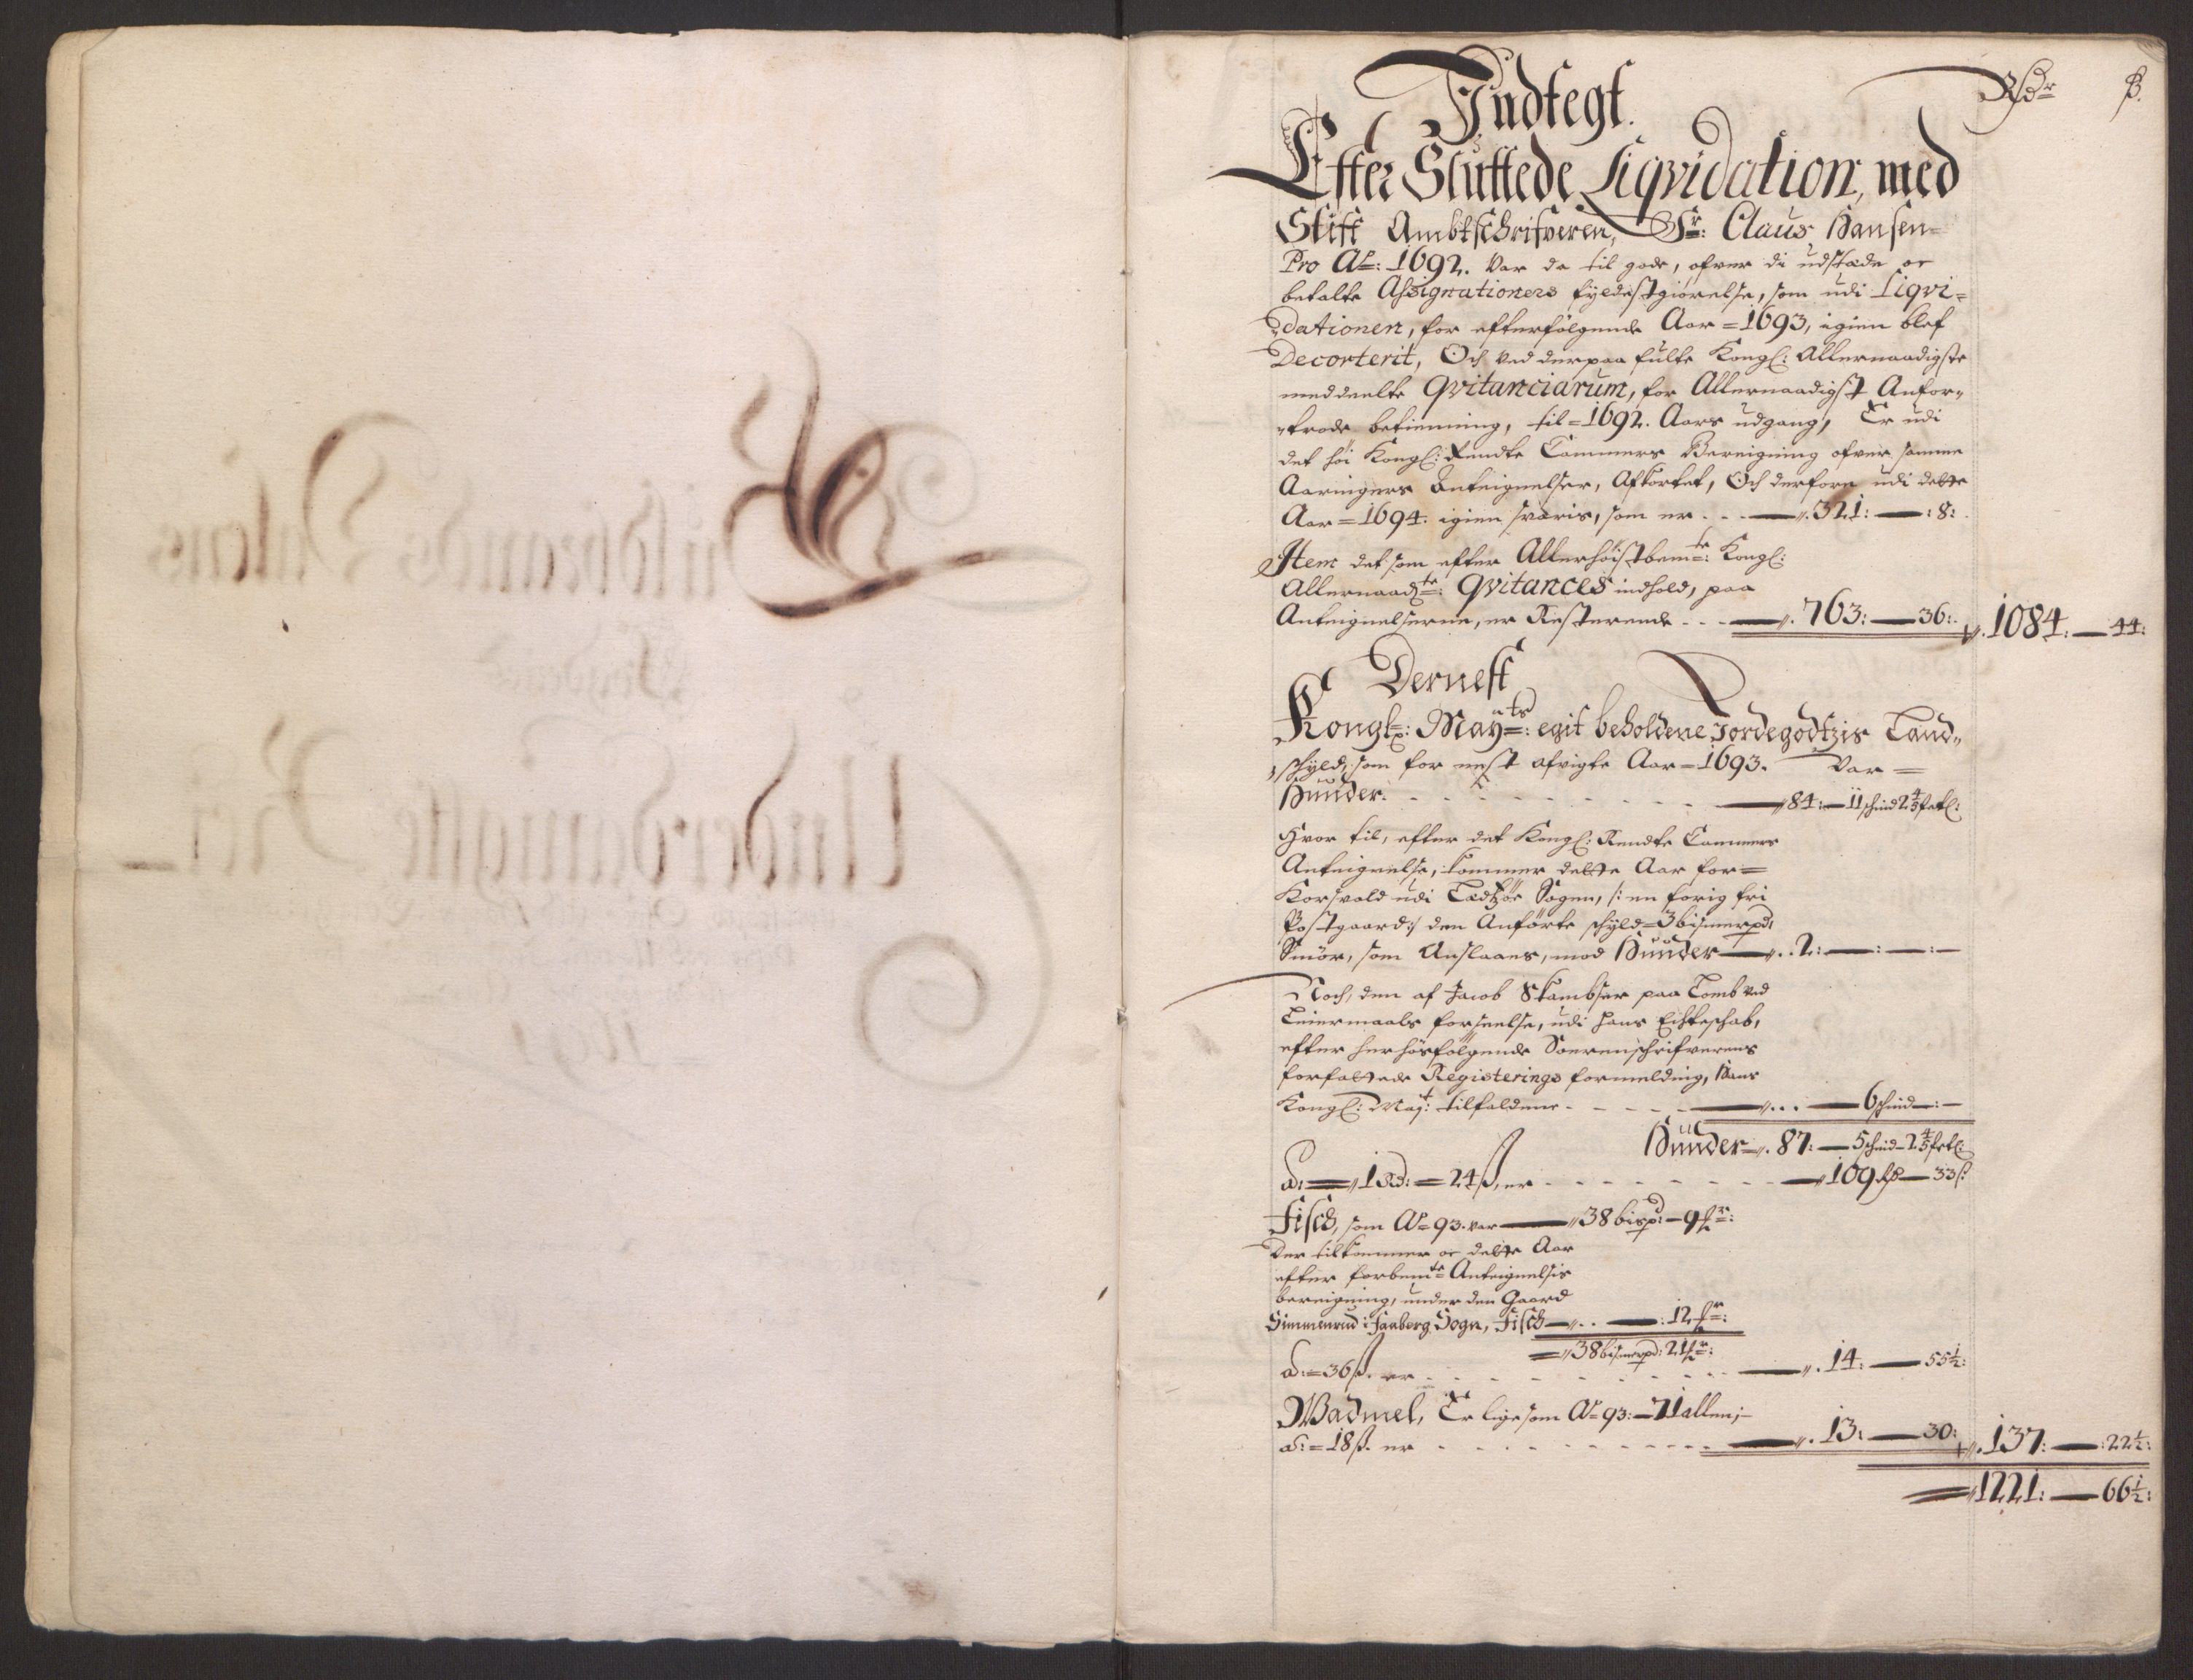 Rdr ß.
Indtegt.
Efter Sluttede Liqvidation, med
Stift Ambtschrifveren, Sr: Claus Hansen
Pro Ao: 1692. Var da til gode, ofver di udstæde oc
betalte Assignationers fyldestgiørelse, som udi Liqvi=
dationen, for efterfølgende Aar = 1693, igien blef
Decorterit, Och ved derpaa fulte Kongl: Allernaadigste
meddeelte Qvitanciarum, for Allernaadigst Anfor„
„trode betienning, til = 1692. Aars udgang, Er udi
det høi Kongl: Rendte Cammers Bereigning ofver samme
Aaringers Anteignelser, Afkortet, Och derfore udi dette
Aar = 1694. igien føris, som er - - - 321: — : 8:
Item det som efter Allerhøistbemte: Kongl:
Allernaadte: Qvitances indhold, paa
Anteignelserne, er Resterende - - - 763: — 36: 1084: — 44:
Dernest
Kongl: Mayts: egit beholdene Jordegodtzis Land„
„schyld, som for nest afvigte Aar = 1693. Var =
Hunder. - - - 84: — 11 schind 2 4/5 fetl:
Hvor til, efter det Kongl: Rendte Cammers
Anteignelse, kommer dette Aar for =
Korsvold udi Sogen, /: en forig fri
Postgaard :/ den Anførte schyld = 3 bismerpd:
Smør, som Anslaaes, mod Hunder — 2: — : — : —
Noch, den af Jacob paa Tomb ved
Leiermaals forseelse, udi hans Echteschab,
efter her hosfølgende Sorenschrifverens
forfattede Registerings formelding, Hans
Kongl: Mayt: tilfaldene - - - 6 schind — : —
Hunder — 87: — 5 schind — 2 4/5 fetl:
a: = 1 Rd: = 24 ß, er - - - 109 Rd — 33 ß:
Fisch, som Ao 93. var — 38 bispd: — 9 mr:
Der tilkommer oc dette Aar
efter forbemte Anteignelsis
bereigning, under den Gaard
Simmenrud i Sogn, Fisch — : 12 mr:
38 bismerpd: 21 mr:
a: = 36 ß. er - - - 14: — 55 1/2:
Wadmel, Er lige som Ao 93: — 71 allen; —
a: = 18 ß. er - - - 13: — 30: 137: — : 22 1/2:
1221: — 66 1/2: